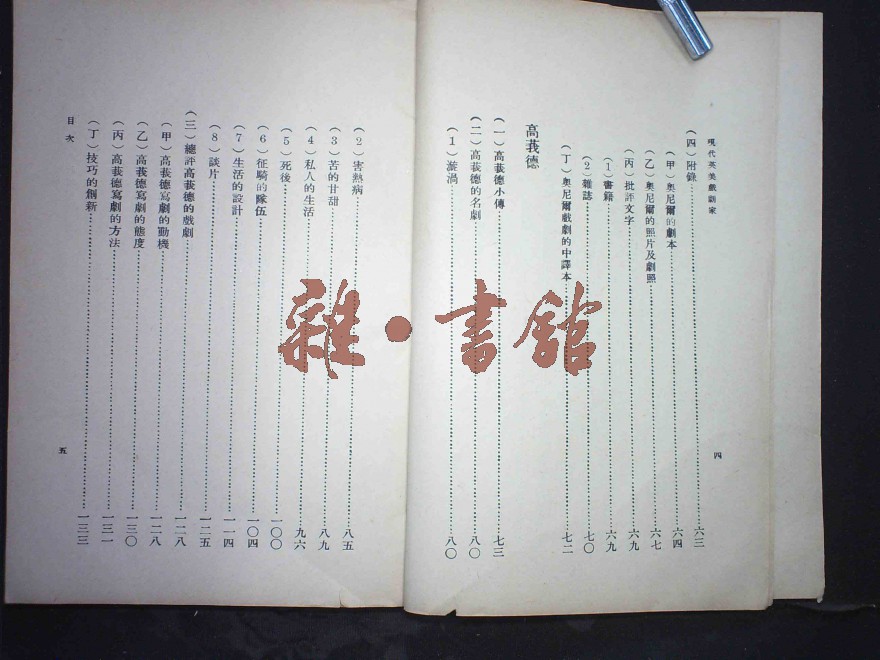 現代英美戲劇家
(四)附錄……六三
(甲)奧尼爾的劇本……六四
(乙)奧尼爾的照片及劇照……六七
(丙)批評文字……六九
(1)書籍……六九
(2)雜誌……七〇
(丁)奧尼爾戲劇的中譯本……七二
高莪德
(一)高莪德小傳……七三
(二)高莪德的名劇……八〇
(1)漩渦……八〇
四
(2)害熱病……八五
(3)苦的甘甜……八九
(4)私人的生活……九六
(5)死後……一〇〇
(6)征騎的隊伍……一〇四
(7)生活的設計……一一四
(8)談片……一二五
(三)總評高莪德的戲劇……一二八
(甲)高莪德寫劇的動機……一二八
(乙)高莪德寫劇的態度……一三〇
(丙)高莪德寫劇的方法……一三一
(丁)技巧的創新……一三三
目次
五
雜·書館